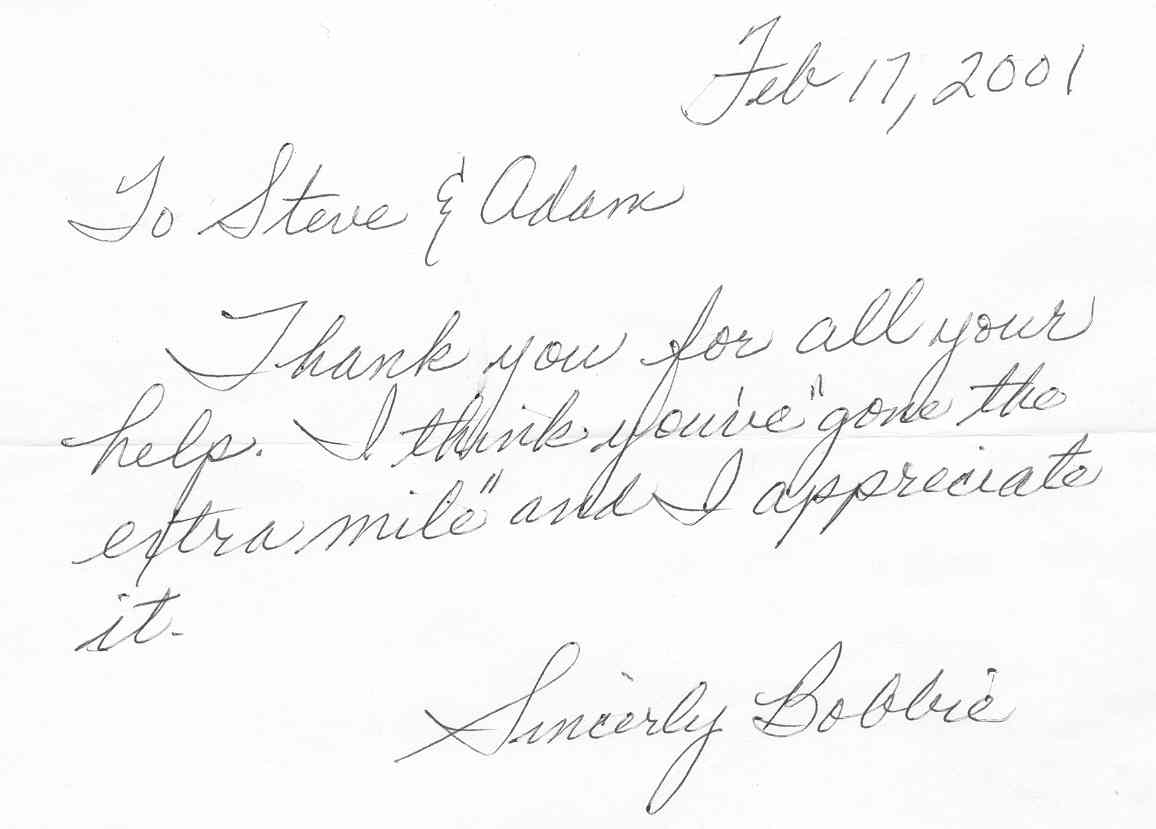 Feb 17, 2001
To Steve & Adam
Thank you for all your
help. I think you've "gone the
extra mile" and I appreciate
it.
Sincerly Bobbie